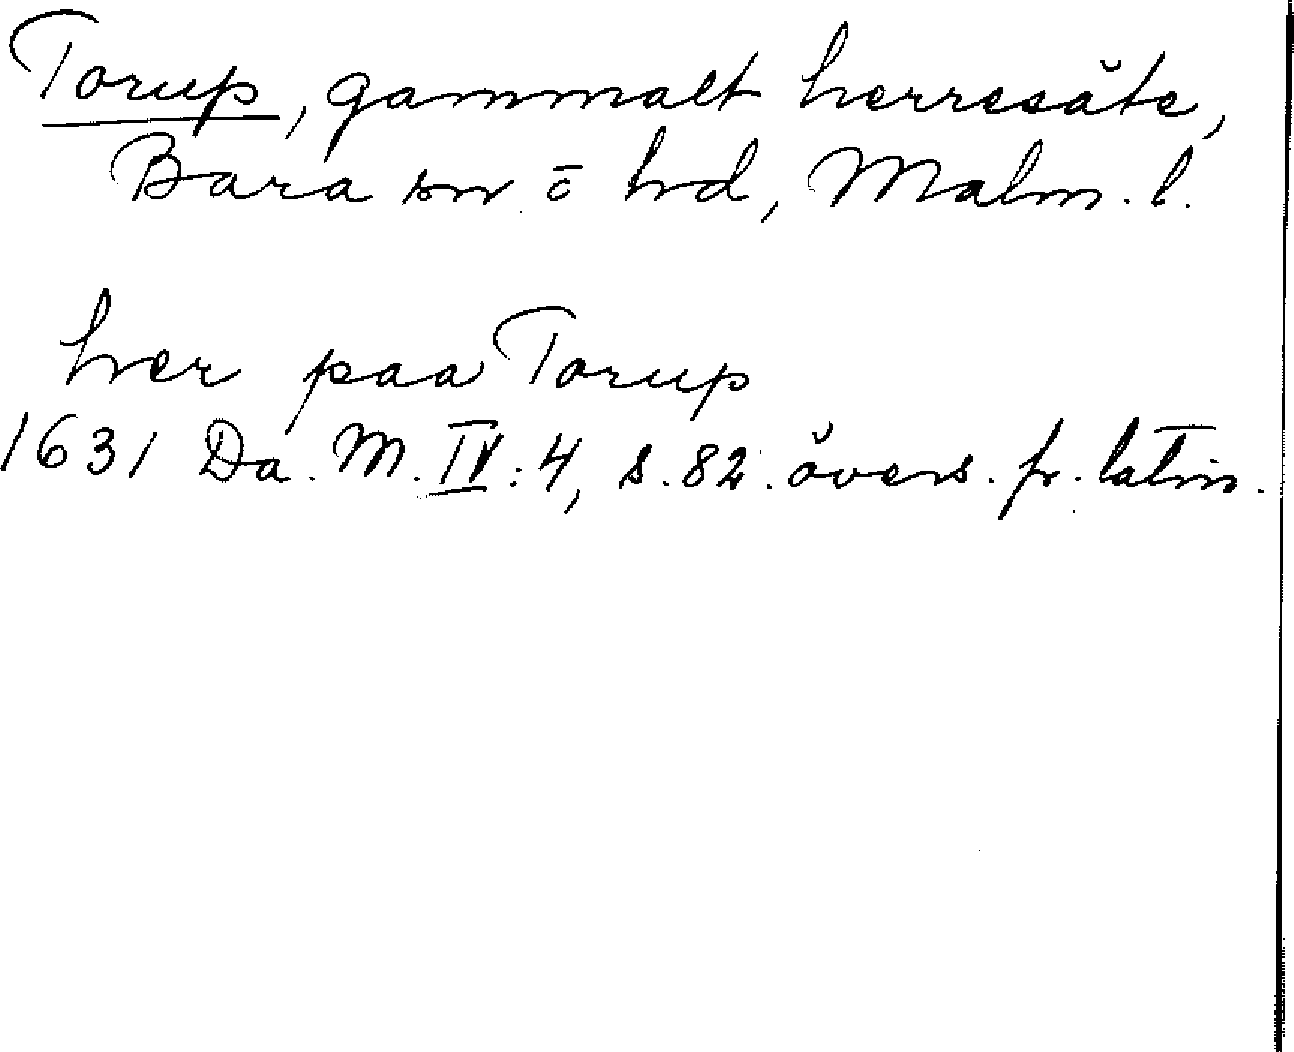 Torup, gammalt herresäte,
Bara sn o hd, Malm. l.
her paa Torup
1631 Da. M. IV: 4, s. 82. övers. fr. latin.